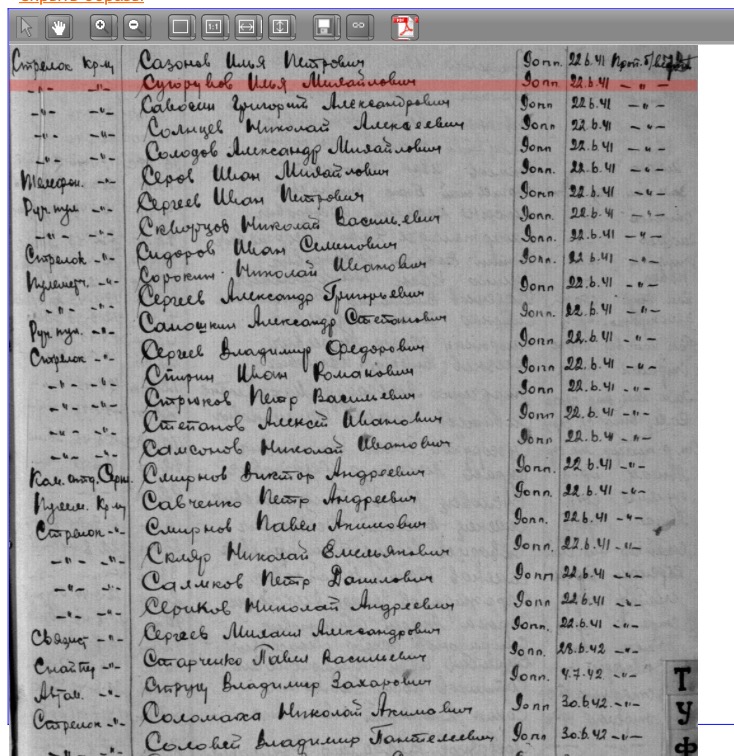 Экспорт образа:
1:1
Стрелок Кр-ц Сазонов Илья Петрович 9опп. 22.6.41
-"- -"- Сугоруков Илья Михайлович 9опп 22.6.41 -"-
-"- -"- Савосин Григорий Александрович 9опп 22.6.41 -"-
-"- -"- Солнцев Николай Алексеевич 9опп 22.6.41 -"-
-"- -"- Солодов Александр Михайлович 9опп 22.6.41 -"-
Телефон. -"- Серов Иван Михайлович 9опп. 22.6.41 -"-
Руч. пул. -"- Сергеев Иван Петрович 9опп 22.6.41 -"-
-"- -"- Скворцов Николай Васильевич 9опп 22.6.41 -"-
Стрелок -"- Сидоров Иван Семенович 9опп. 22.6.41 -"-
Пулеметч. -"- Сорокин Николай Иванович 9опп. 22.6.41 -"-
-"- -"- Сергеев Александр Григорьевич 9опп 22.6.41 -"-
Руч. пул. -"- Самошкин Александр Степанович 9опп. 22.6.41 -"-
Стрелок -"- Сергеев Владимир Федорович 9опп. 22.6.41 -"-
-"- -"- Спирин Иван Романович 9опп 22.6.41 -"-
-"- -"- Стрюков Петр Васильевич 9опп 22.6.41 -"-
-"- -"- Степанов Алексей Иванович 9опп 22.6.41 -"-
-"- -"- Самсонов Николай Иванович 9опп 22.6.41 -"-
Ком. отд. Серж. Смирнов Виктор Андреевич 9опп. 22.6.41 -"-
Пулем. Кр-ц Савченко Петр Андреевич 9опп. 22.6.41 -"-
Стрелок -"- Смирнов Павел Акимович 9опп. 22.6.41 -"-
-"- -"- Скляр Николай Емельянович 9опп. 22.6.41 -"-
-"- -"- Салмков Петр Данилович 9опп 22.6.41 -"-
-"- -"- Сериков Николай Андреевич 9опп 22.6.41 -"-
Связист -"- Сергеев Михаил Александрович 9опп. 22.6.41 -"-
Снайпер -"- Старченко Павел Васильевич 9опп. 28.6.42 -"-
Автом. -"- Струц Владимир Захарович 9опп. 4.7.42 -"-
Стрелок -"- Соломаха Николай Акимович 9опп 30.6.42 -"-
-"- -"- Соловей Владимир Пантелеевич 9опп 30.6.42 -"-
Т
У
Ф